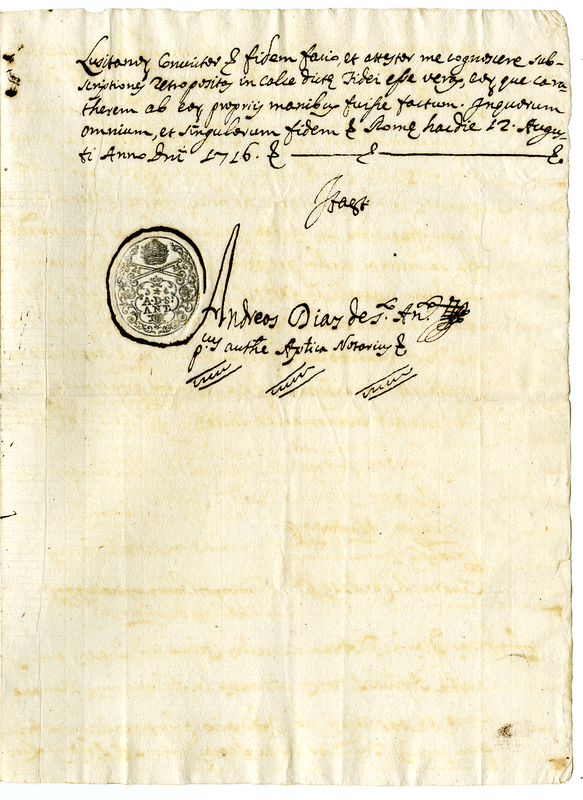 Lusitaneȝ Convictor & fidem facio, et attestor me cognoscere sub-
scriptioneȝ retropositaȝ in calce dictę Fidei esse veraȝ, eoȝque cara-
therem ab eoȝ proprijȝ manibuȝ fuisse factum. Inquorum
omnium, et singulorum fidem & Romę hac die 12. Augus
ti Anno Dnī 1716. &
Ita est
A.D.S.
AND
Andreas Dias de S.ᵗᵒ An.ᵗᵒ
p.ᵘˢ authe Aplica Notarius &